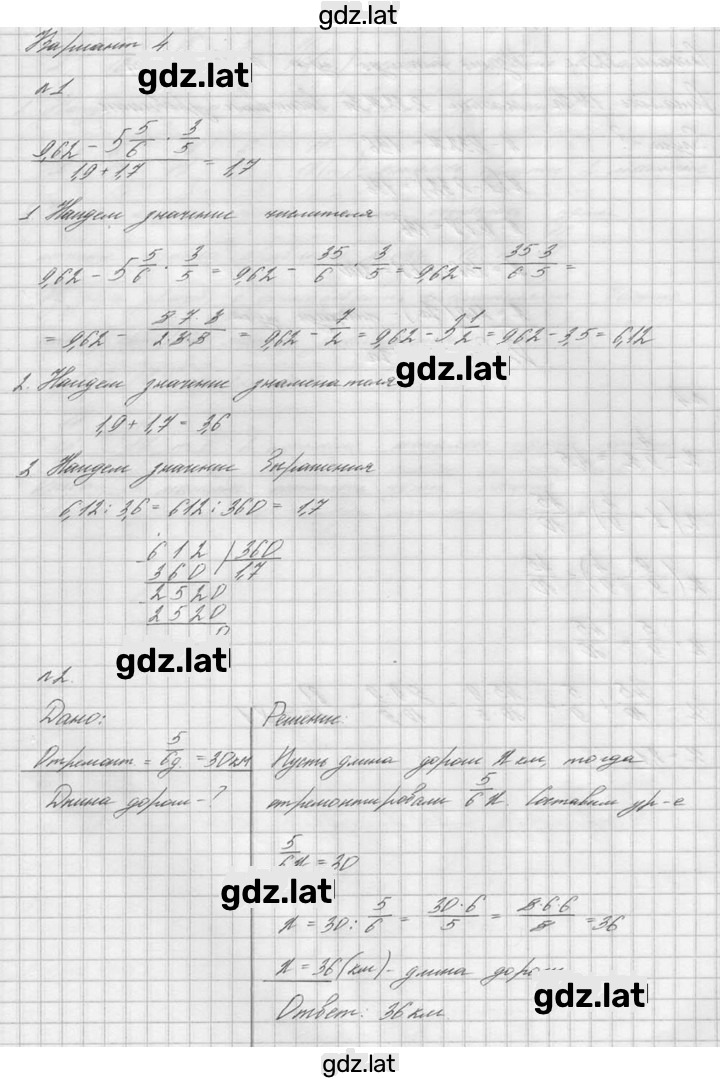 gdz.lat
Вариант 4
gdz.lat
№1
9,62 - 5 5/6 · 3/5
1,9 + 1,7 = 1,7
1 Найдем значение числителя
9,62 - 5 5/6 · 3/5 = 9,62 - 35/6 · 3/5 = 9,62 - 35 3/6 5 =
= 9,62 - 5·7·3/2·3·5 = 9,62 - 7/2 = 9,62 - 3 1/2 = 9,62 - 3,5 = 6,12
gdz.lat
2. Найдем значение знаменателя
1,9 + 1,7 = 3,6
3 Найдем значение Выражения
6,12 : 3,6 = 612 : 360 = 1,7
612 | 360
360 1,7
2520
2520
0
gdz.lat
№2.
Дано: Решение:
Отремонт = 5/6 д = 30 км Пусть длина дороги x км, тогда
Длина дороги - ? отремонтировали 5/6 x. Составим ур-е
5/6 x = 30
gdz.lat
x = 30 : 5/6 = 30·6/5 = 5·6·6/5 = 36
x = 36 (км) - длина дороги
gdz.lat
Ответ: 36 км.
gdz.lat